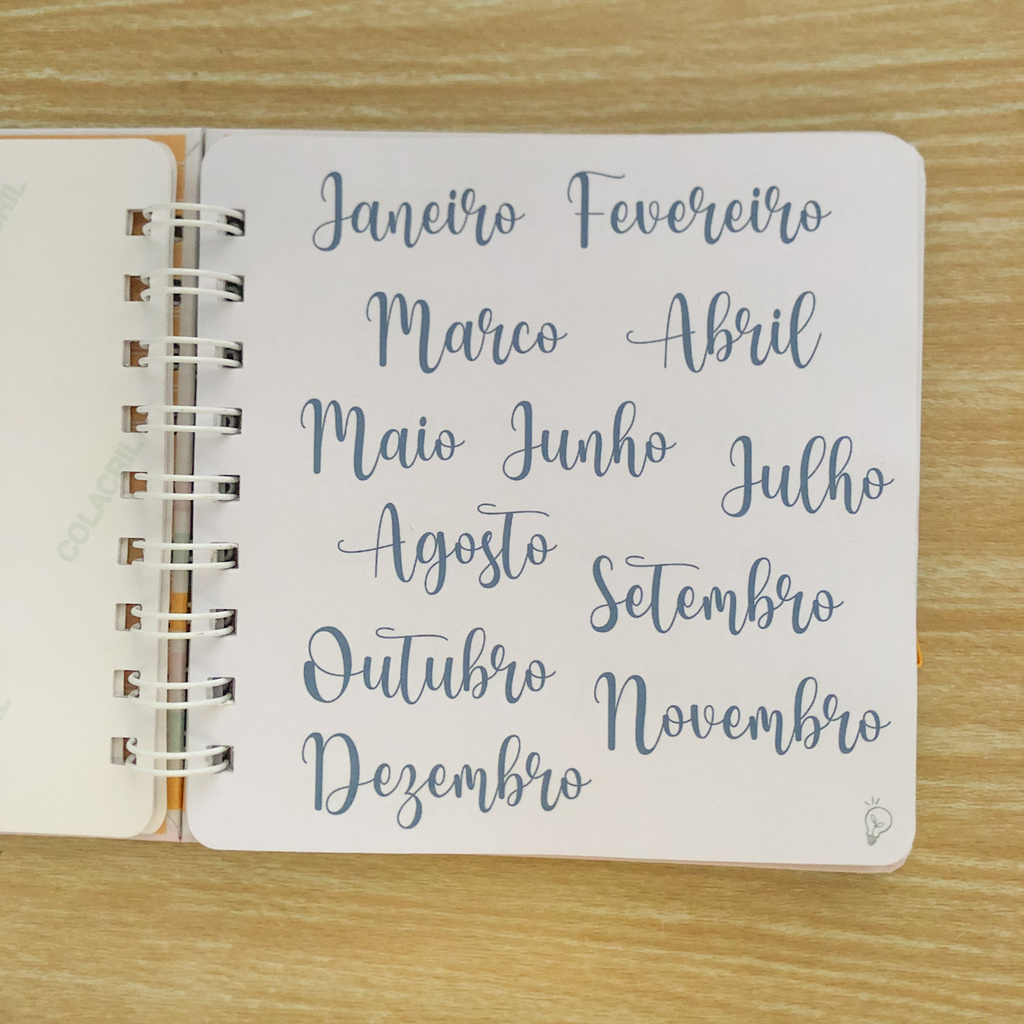 Janeiro Fevereiro
Marco Abril
Maio Junho Julho
Agosto Setembro
Outubro Novembro
Dezembro
COLACRIL